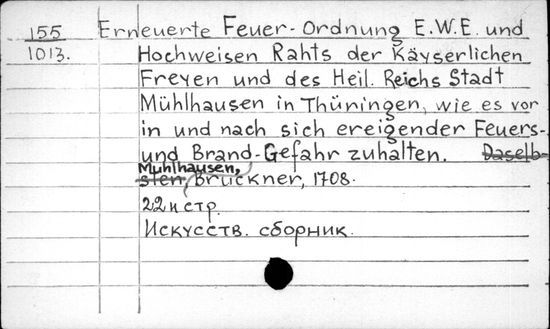 155 Erneuerte Feuer-Ordnung E.W.E. und
1013. Hochweisen Rahts der Käyserlichen
Freyen und des Heil. Reichs Stadt
Mühlhausen in Thüringen, wie es vor
in und nach sich ereigender Feuers-
und Brand-Gefahr zuhalten. Daselb-
Muhlhausen,
sten, Brückner, 1708.
22 н стр.
Искусств. сборник.